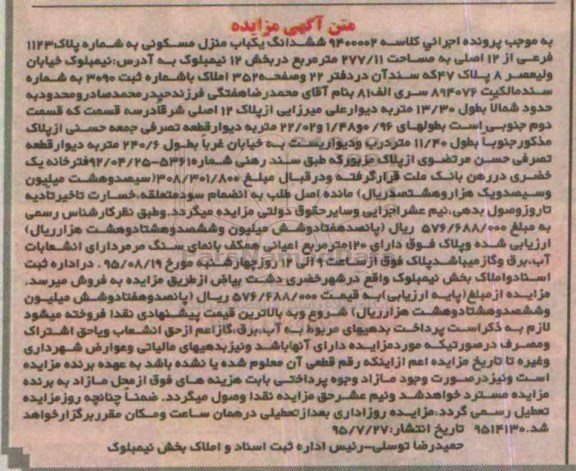 متن آگهی مزایده
به موجب پرونده اجرائی کلاسه ۹۴۰۰۰۰۲ ششدانگ یکباب منزل مسکونی به شماره پلاک۱۱۲۳
فرعی از ۱۲ اصلی به مساحت ۲۷۷/۱۱ مترمربع دربخش ۱۲ نیمبلوک به آدرس:نیمبلوک خیابان
ولیعصر ۸ پلاک ۴۷که سندآن دردفتر ۲۲ وصفحه۳۵۲ املاک باشماره ثبت ۳۰۹۰ به شماره
سندمالکیت ۸۹۴۰۷۶ سری الف۸۱ بنام آقای محمدرضاهفتگی فرزندحیدرمحمدصادرومحدودبه
حدود شمالاً بطول ۱۳/۳۰ متربه دیوارعلی میرزایی ازپلاک ۱۲ اصلی شرقادرسه قسمت که قسمت
دوم جنوبی است بطولهای ۰/۹۶ و۱/۴۸ و۲۲/۰۲ متربه دیوارقطعه تصرفی جمعه حسنی ازپلاک
مذکورجنوباً بطول ۱۱/۴۰ متردرب ودیواریست به خیابان غرباً بطول ۲۴۰/۶ متربه دیوارقطعه
تصرفی حسن مرتضوی ازپلاک مزبورکه طبق سند رهنی شماره۵۳۶۱-۹۲/۰۴/۲۵دفترخانه یک
خضری دررهن بانک ملت قرارگرفته ودرقبال مبلغ ۳۰۸/۳۰۱/۸۰۰(سیصدوهشت میلیون
وسیصدویک هزاروهشتصدریال) مانده اصل طلب به انضمام سودمتعلقه،خسارت تاخیرتادیه
تاروزوصول بدهی،نیم عشراجرایی وسایرحقوق دولتی مزایده میگردد.وطبق نظرکارشناس رسمی
به مبلغ ۵۷۶/۶۸۸/۰۰۰ ریال (پانصدهفتادوشش میلیون وششصدوهشتادوهشت هزارریال)
ارزیابی شده وپلاک فوق دارای ۱۲۰مترمربع اعیانی همکف بانمای سنگ مرمردارای انشعابات
آب،برق وگازمیباشدپلاک فوق ازساعت ۹ الی ۱۲ روزچهارشنبه مورخ ۹۵/۰۸/۱۹ . دراداره ثبت
اسنادواملاک بخش نیمبلوک واقع درشهرخضری دشت بیاض ازطریق مزایده به فروش میرسد.
مزایده ازمبلغ(پایه ارزیابی)به قیمت ۵۷۶/۶۸۸/۰۰۰ ریال (پانصدوهفتادوشش میلیون
وششصدوهشتادوهشت هزارریال) شروع وبه بالاترین قیمت پیشنهادی نقدا فروخته میشود
لازم به ذکراست پرداخت بدهیهای مربوط به آب،برق،گازاعم ازحق انشعاب ویاحق اشتراک
ومصرف درصورتیکه موردمزایده دارای آنهاباشد ونیزبدهیهای مالیاتی وعوارض شهرداری
وغیره تا تاریخ مزایده اعم ازاینکه رقم قطعی آن معلوم شده یا نشده باشد به عهده برنده مزایده
است ونیزدرصورت وجود مازاد وجوه پرداختی بابت هزینه های فوق ازمحل مازاد به برنده
مزایده مسترد خواهدشد ونیم عشرحق مزایده نقدا وصول میگردد. ضمناً چنانچه روزمزایده
تعطیل رسمی گردد،مزایده روزاداری بعدازتعطیلی درهمان ساعت ومکان مقرربرگزارخواهد
شد. ۹۵۱۴۱۳۰ تاریخ انتشار:۹۵/۷/۲۷
حمیدرضا توسلی-رئیس اداره ثبت اسناد و املاک بخش نیمبلوک